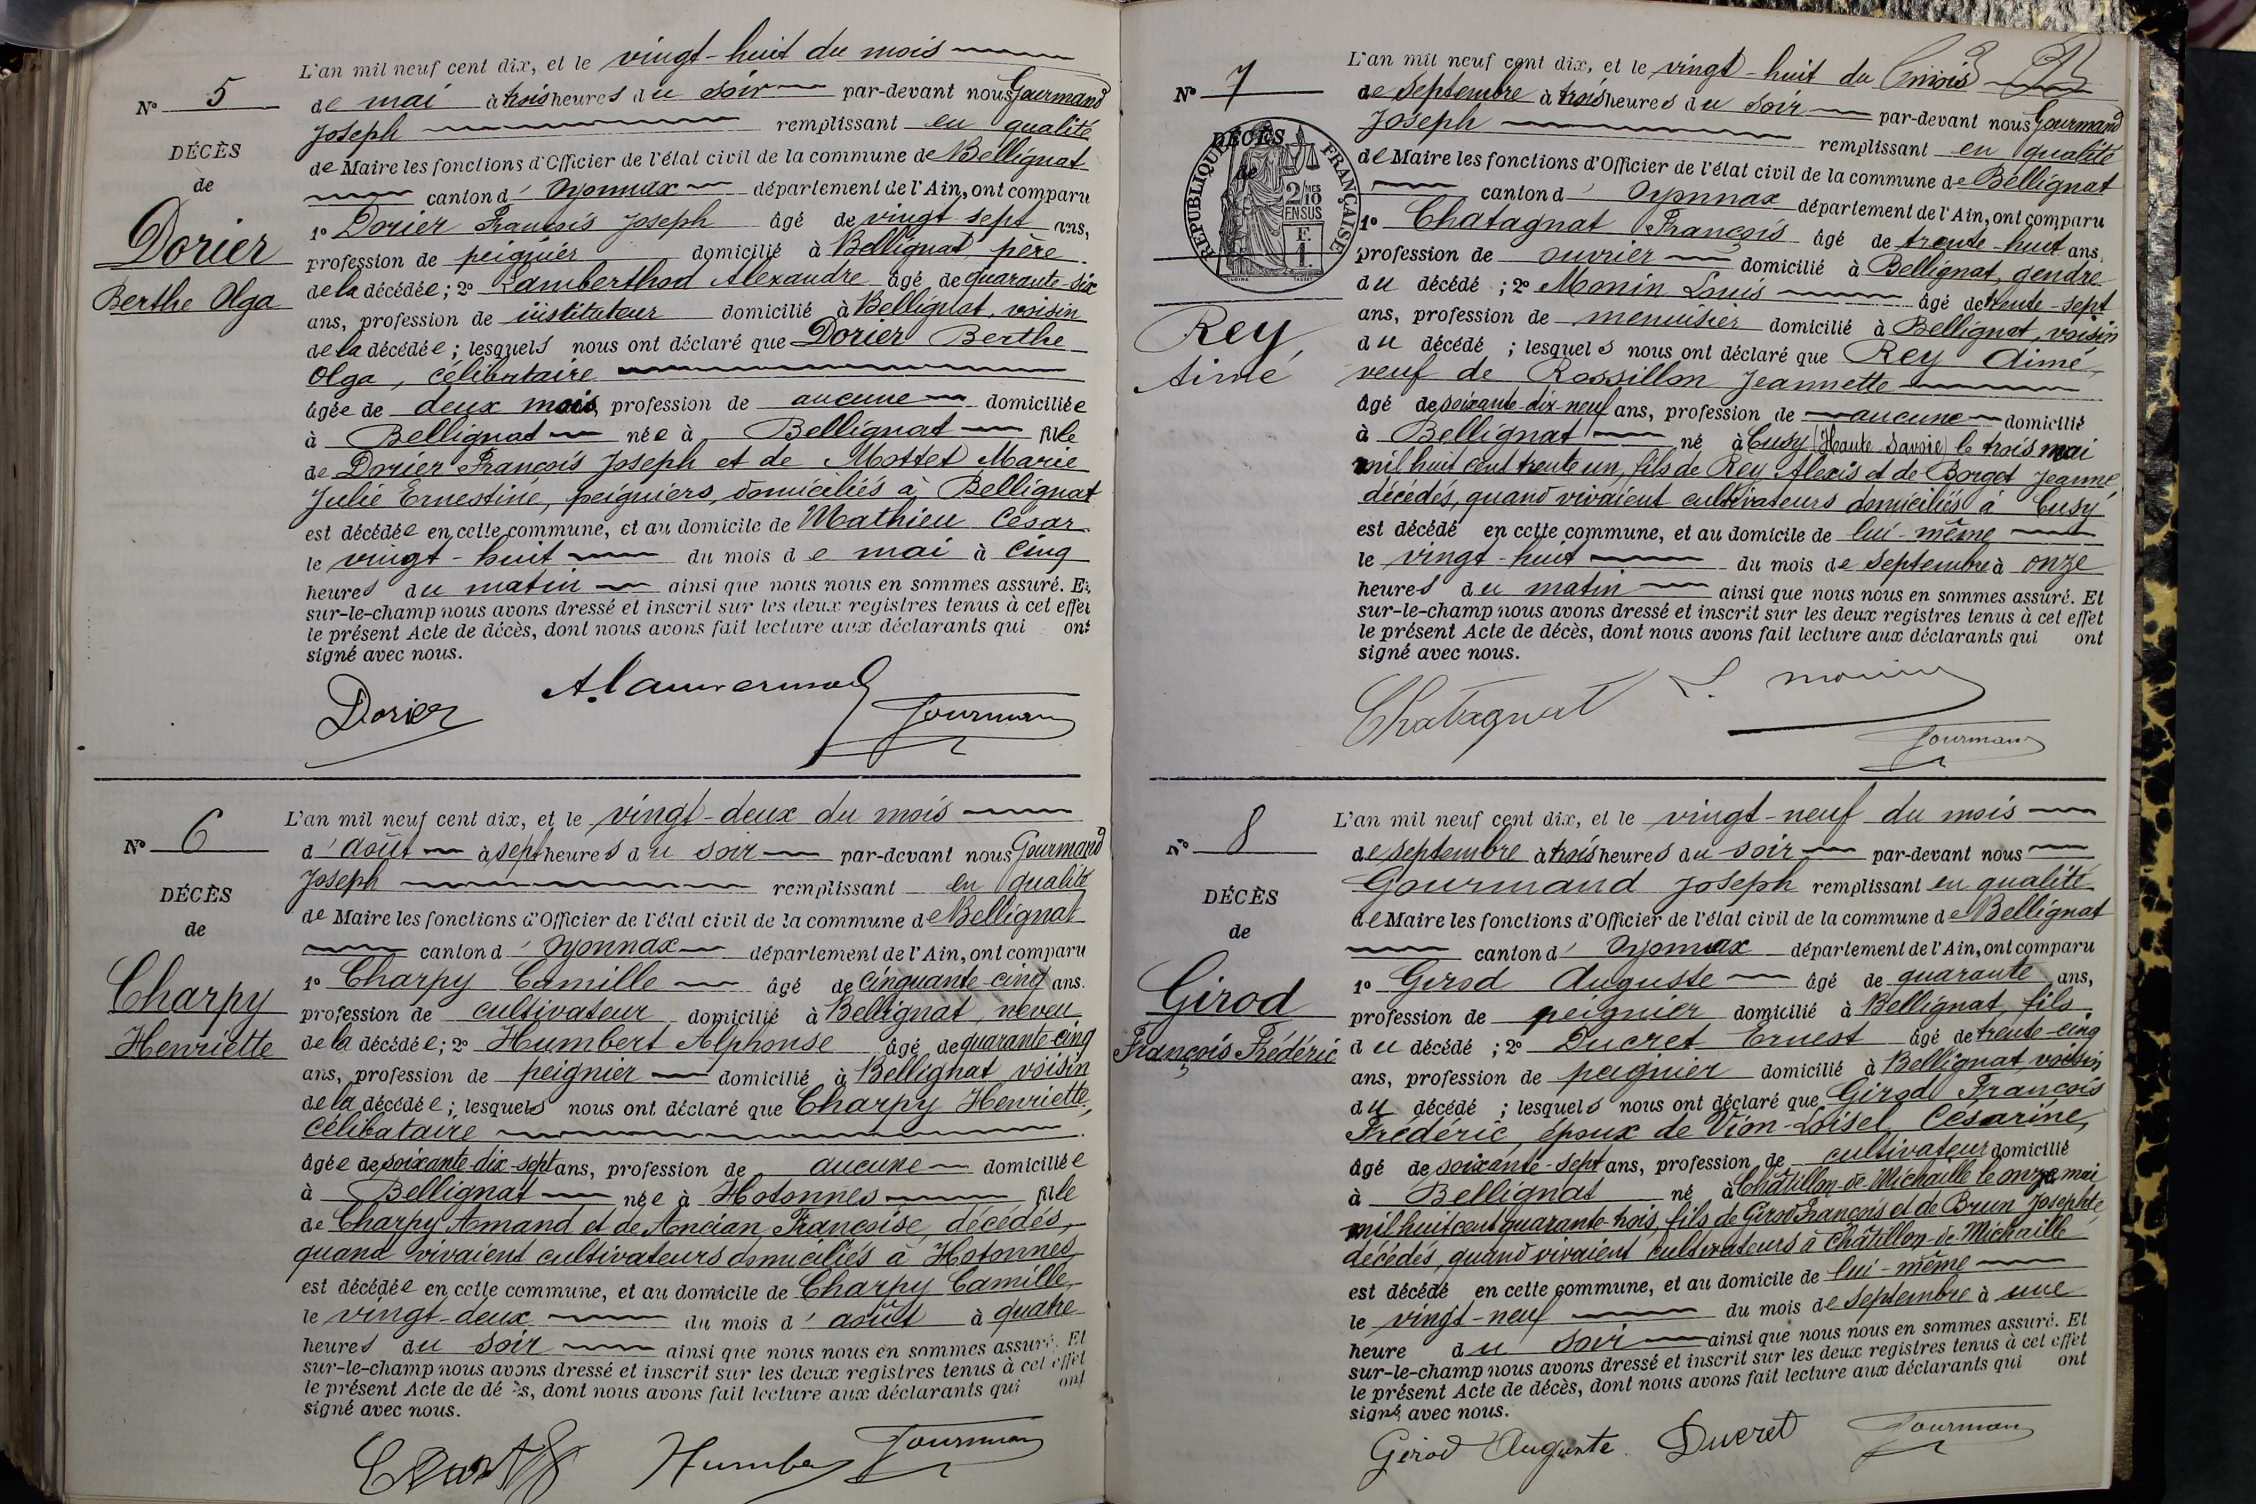 L'an mil neuf cent dix, et le vingt-huit du mois
N° 5
de mai à trois heures du soir par-devant nous Gourmand
Joseph remplissant en qualité
DÉCÈS
de Maire les fonctions d'Officier de l'état civil de la commune de Bellignat
de
canton d'Oyonnax département de l'Ain, ont comparu
Dorier
1° Dorier François Joseph âgé de vingt sept ans,
profession de peignier domicilié à Bellignat, père
Berthe Olga
de la décédée ; 2° Lamberthod Alexandre âgé de quarante-six
ans, profession de instituteur domicilié à Bellignat, voisin
de la décédée ; lesquels nous ont déclaré que Dorier Berthe
Olga, célibataire
âgée de deux mois, profession de aucune domiciliée
à Bellignat née à Bellignat fille
de Dorier François Joseph et de Mottet Marie
Julie Ernestine, peigniers, domiciliés à Bellignat
est décédée en cette commune, et au domicile de Mathieu César
le vingt-huit du mois de mai à cinq
heures du matin ainsi que nous nous en sommes assuré. Et
sur-le-champ nous avons dressé et inscrit sur les deux registres tenus à cet effet
le présent Acte de décès, dont nous avons fait lecture aux déclarants qui ont
signé avec nous.
Dorier
Gourmand
L'an mil neuf cent dix, et le vingt-deux du mois
N° 6
d'août à sept heures du soir par-devant nous Gourmand
Joseph remplissant en qualité
DÉCÈS
de Maire les fonctions d'Officier de l'état civil de la commune de Bellignat
de
canton d'Oyonnax département de l'Ain, ont comparu
Charpy
1° Charpy Camille âgé de cinquante-cinq ans.
profession de cultivateur domicilié à Bellignat, neveu
Henriette
de la décédée ; 2° Humbert Alphonse âgé de quarante-cinq
ans, profession de peignier domicilié à Bellignat voisin
de la décédée ; lesquels nous ont déclaré que Charpy Henriette,
célibataire
âgée de soixante-dix-sept ans, profession de aucune domiciliée
à Bellignat née à Hotonnes fille
de Charpy Amand et de Ancian Françoise, décédés,
quand vivaient cultivateurs domiciliés à Hotonnes
est décédée en cette commune, et au domicile de Charpy Camille,
le vingt-deux du mois d'août à quatre
heures du soir ainsi que nous nous en sommes assuré. Et
sur-le-champ nous avons dressé et inscrit sur les deux registres tenus à cet effet
le présent Acte de décès, dont nous avons fait lecture aux déclarants qui ont
signé avec nous.
Humbert
Gourmand
L'an mil neuf cent dix, et le vingt-huit du mois
N° 7
de septembre à trois heures du soir par-devant nous Gourmand
Joseph remplissant en qualité
DÉCÈS
de Maire les fonctions d'Officier de l'état civil de la commune de Bellignat
de
RÉPUBLIQUE FRANÇAISE
2/10 MES
EN SUS
F.
1.
canton d'Oyonnax département de l'Ain, ont comparu
1° Chatagnat François âgé de trente-huit ans,
profession de ouvrier domicilié à Bellignat, gendre
du décédé ; 2° Monin Louis âgé de trente-sept
Rey
ans, profession de menuisier domicilié à Bellignat, voisin
du décédé ; lesquels nous ont déclaré que Rey Aimé,
Aimé
veuf de Rossillon Jeannette
âgé de soixante-dix-neuf ans, profession de aucune domicilié
à Bellignat né à Cusy (Haute Savoie) le trois mai
mil huit cent trente un, fils de Rey Alexis et de Borget Jeanne
décédés, quand vivaient cultivateurs domiciliés à Cusy
est décédé en cette commune, et au domicile de lui-même
le vingt-huit du mois de septembre à onze
heures du matin ainsi que nous nous en sommes assuré. Et
sur-le-champ nous avons dressé et inscrit sur les deux registres tenus à cet effet
le présent Acte de décès, dont nous avons fait lecture aux déclarants qui ont
signé avec nous.
Chatagnat L. Monin
Gourmand
L'an mil neuf cent dix, et le vingt-neuf du mois
N° 8
de septembre à trois heures du soir par-devant nous
Gourmand Joseph remplissant en qualité
DÉCÈS
de Maire les fonctions d'Officier de l'état civil de la commune de Bellignat
de
canton d'Oyonnax département de l'Ain, ont comparu
Girod
1° Girod Auguste âgé de quarante ans,
profession de peignier domicilié à Bellignat, fils
François Frédéric
du décédé ; 2° Ducret Ernest âgé de trente-cinq
ans, profession de peignier domicilié à Bellignat, voisin
du décédé ; lesquels nous ont déclaré que Girod François
Frédéric, époux de Vion-Loisel Césarine,
âgé de soixante-sept ans, profession de cultivateur domicilié
à Bellignat né à Châtillon-de-Michaille le onze mai
mil huit cent quarante-trois, fils de Girod François et de Brun Josephte
décédés, quand vivaient cultivateurs à Châtillon-de-Michaille
est décédé en cette commune, et au domicile de lui-même
le vingt-neuf du mois de septembre à une
heure du soir ainsi que nous nous en sommes assuré. Et
sur-le-champ nous avons dressé et inscrit sur les deux registres tenus à cet effet
le présent Acte de décès, dont nous avons fait lecture aux déclarants qui ont
signé avec nous.
Girod Auguste Ducret Gourmand